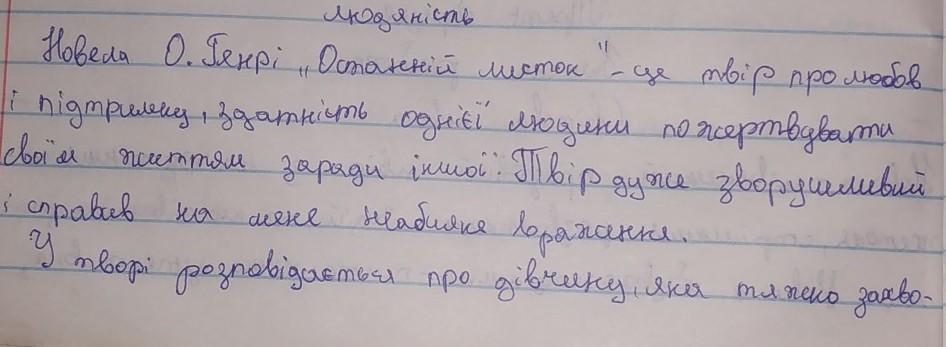 людяність
Новела О. Генрі „Останній листок" - це твір про любов
і підтримку, здатність однієї людини пожертвувати
своїм життям заради іншої. Твір дуже зворушливий
і справив на мене неабияке враження.
У творі розповідається про дівчину, яка тяжко захво-